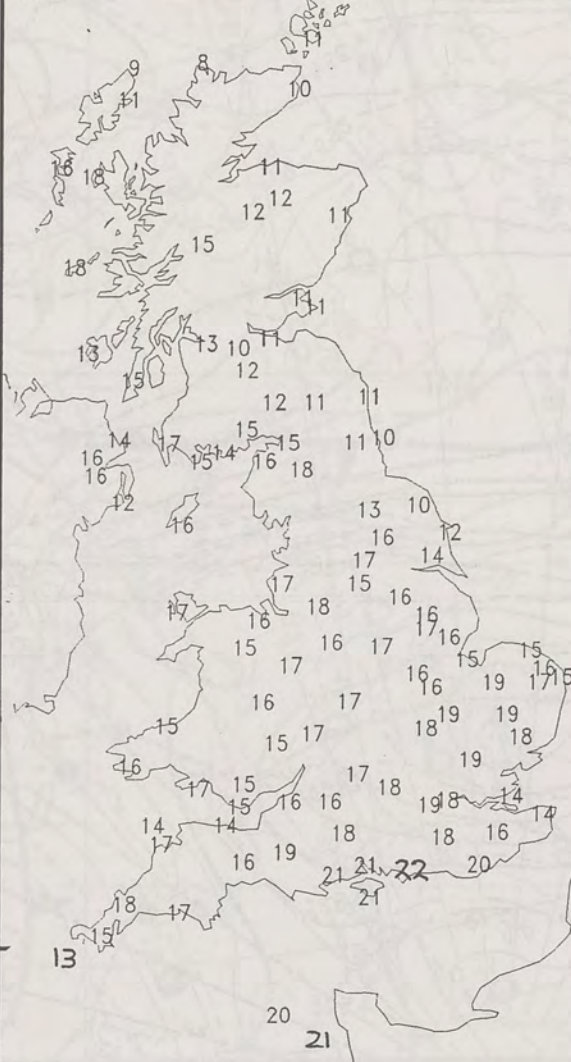 11
9 8
11 10
16 18 11
12 12 11
15
18
11 11
13 13 10 11
15 12
12 11 11
14 17 15 15 11 10
16 15 14 16 18
16
12 13 10
16 16 12
17 14
17 15 16
17 16 18 16
17 16
15 16 17 15 15
17 16
16 16 19 17 15
16 17 19 19
15 17 18 18
15
16 17 19
17 15 18
15 16 16 19 18 14
14 14 18 18 16 14
17
16 19 21 21 22 20
21
18 17
15
13
20
21